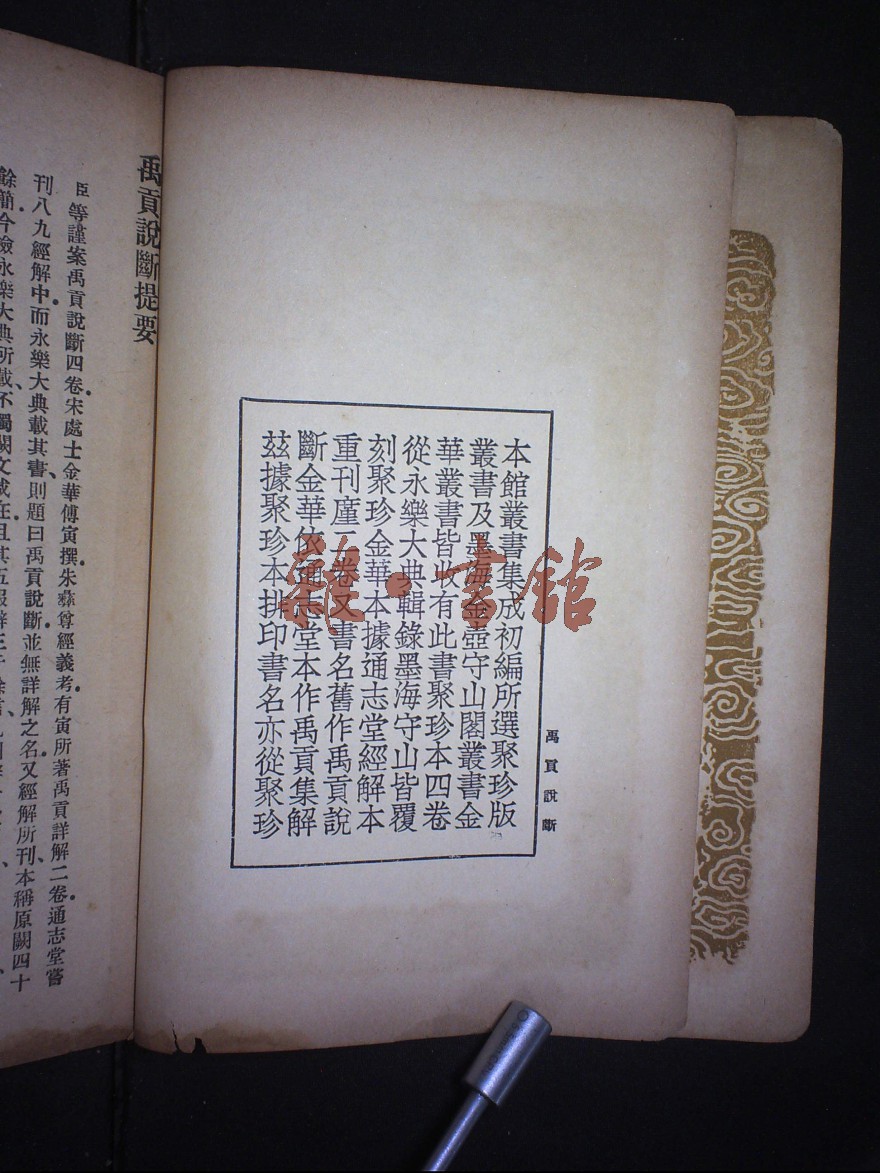 本館叢書集成初編所選聚珍版
叢書及墨海金壺守山閣叢書金
華叢書皆收有此書聚珍本四卷
從永樂大典輯錄墨海守山皆覆
刻聚珍金華本據通志堂經解本
重刊廑二卷又書名舊作禹貢說
斷金華依通志堂本作禹貢集解
茲據聚珍本排印書名亦從聚珍
禹貢說斷
雜·書館
禹貢說斷提要
臣等謹案禹貢說斷四卷宋處士金華傅寅撰朱彝尊經義考有寅所著禹貢詳解二卷通志堂嘗
刊入九經解中而永樂大典載其書則題曰禹貢說斷並無詳解之名又經解所刊本稱原闕四十
餘簡今檢永樂大典所載不獨闕文咸在且其五服辨